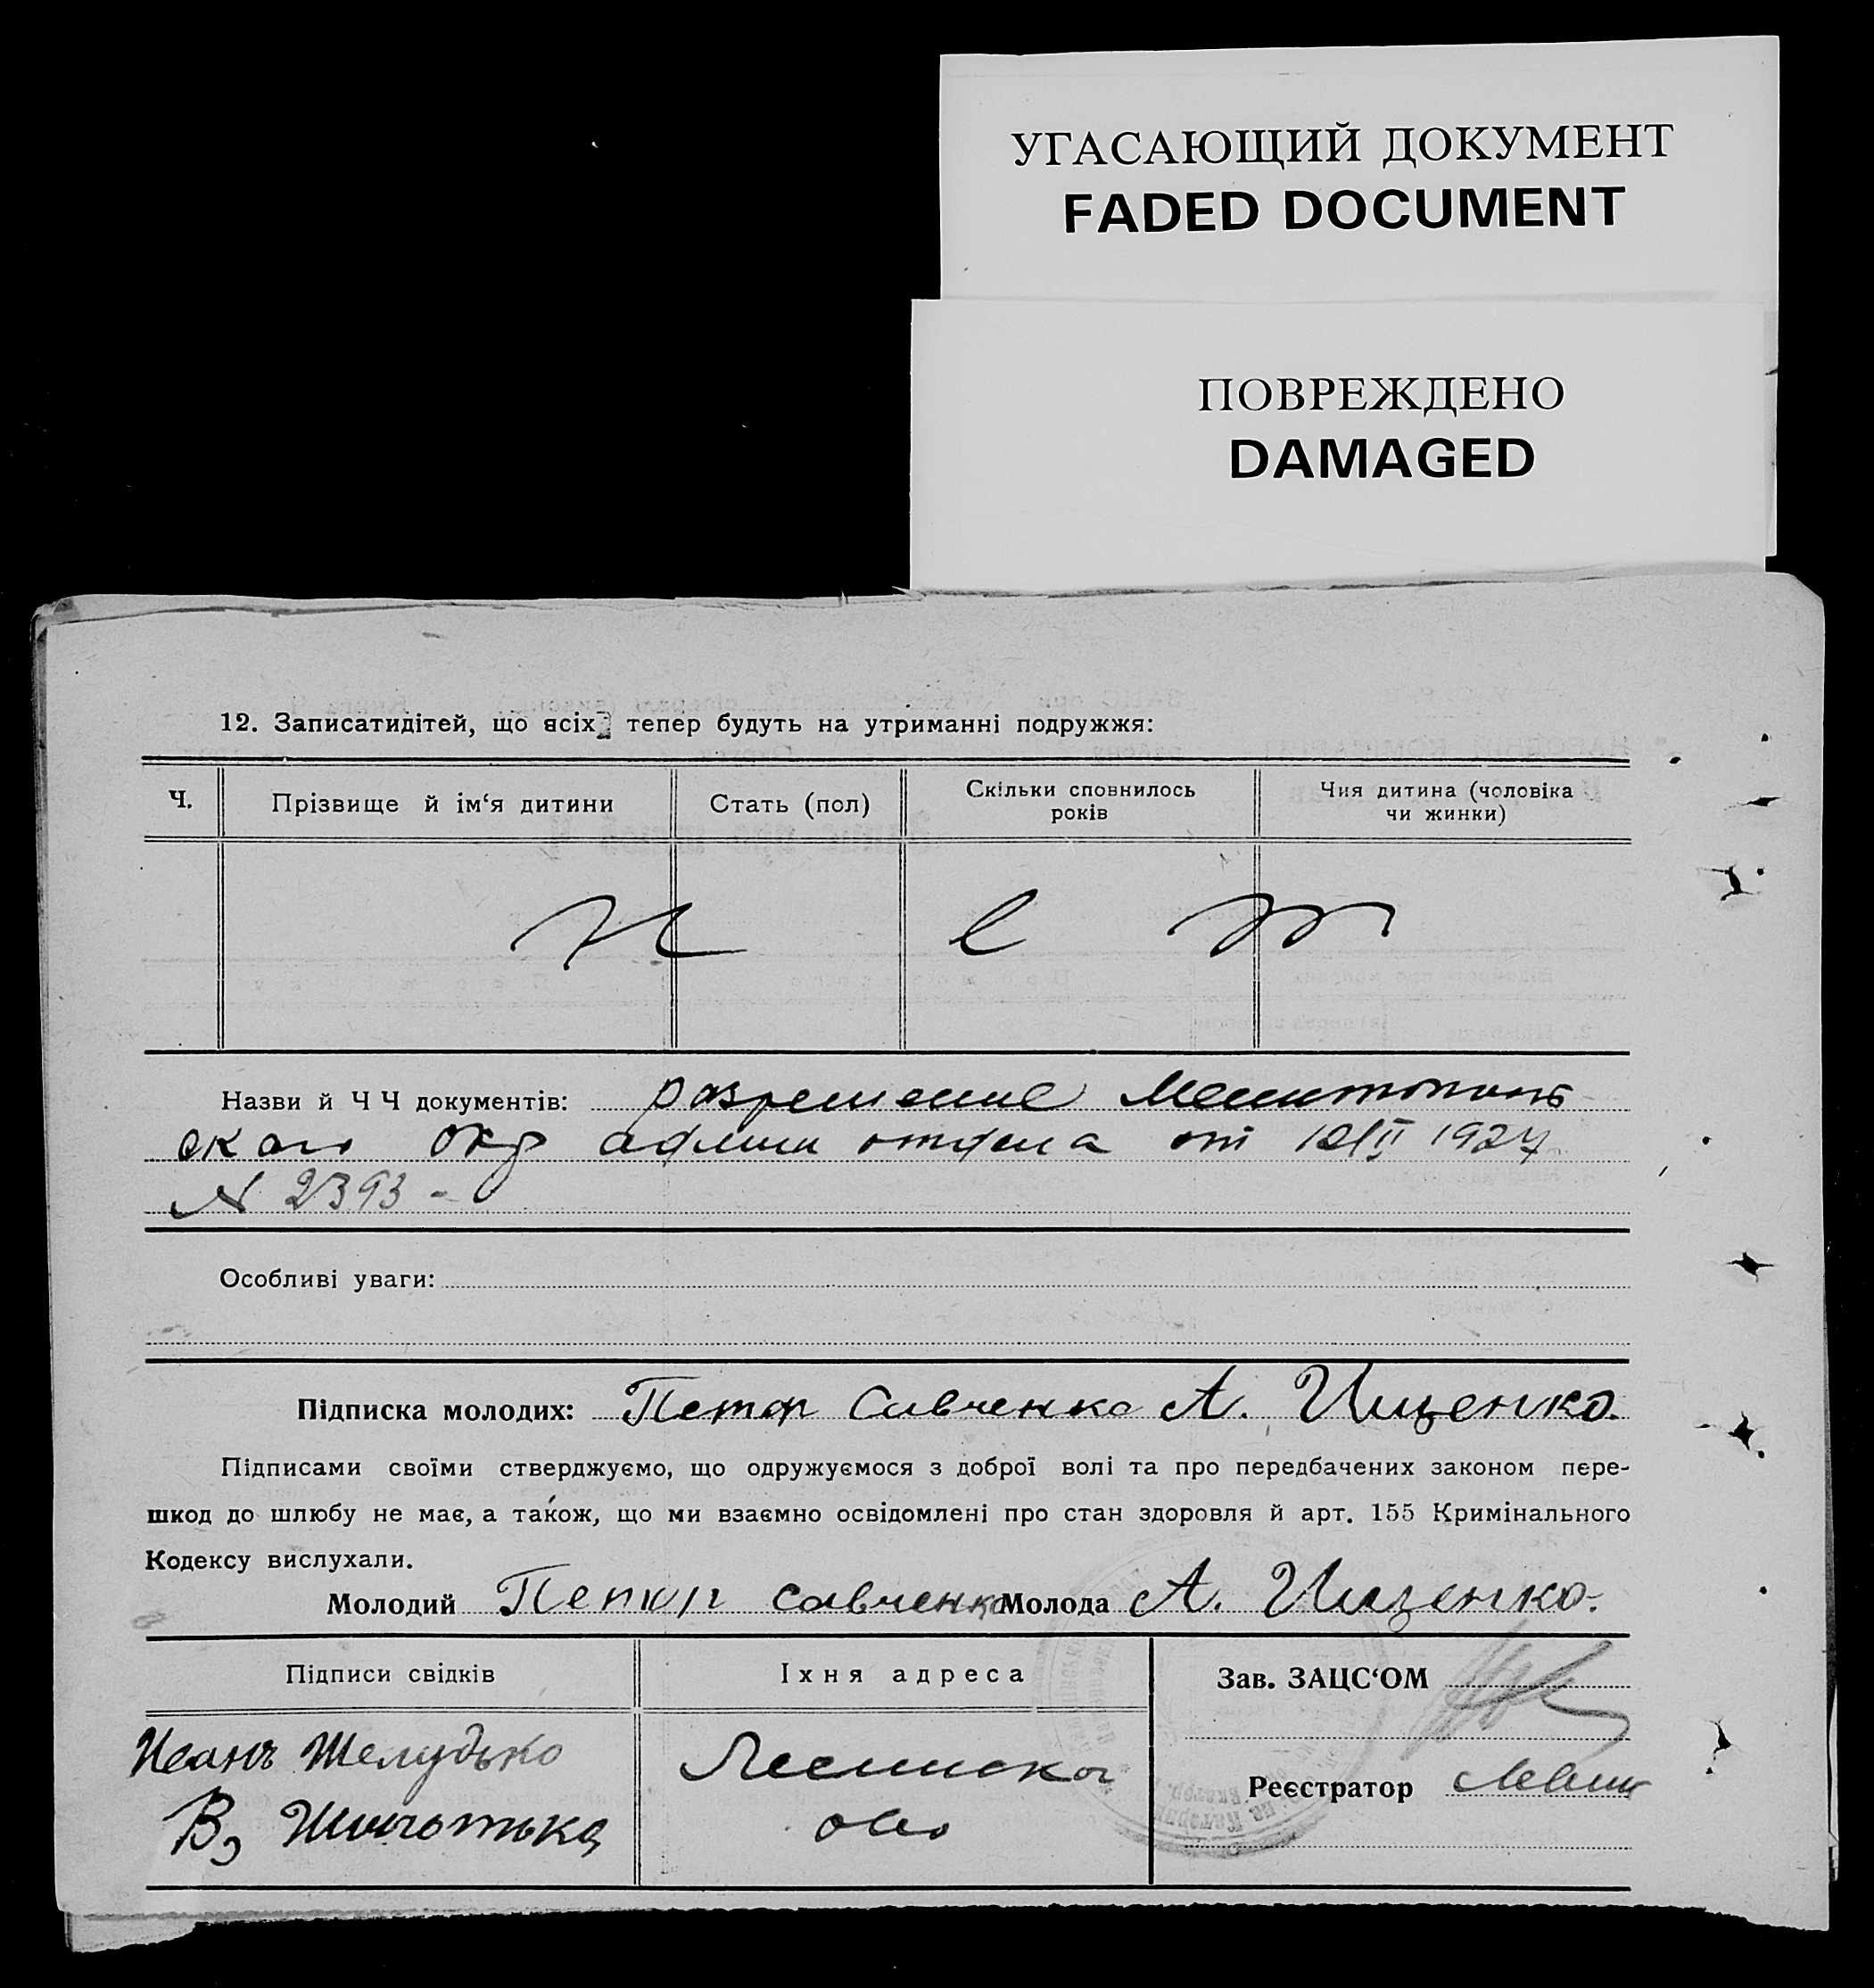 УГАСАЮЩИЙ ДОКУМЕНТ
FADED DOCUMENT
ПОВРЕЖДЕНО
DAMAGED
12. Записатидітей, що всіх тепер будуть на утриманні подружжя:
Ч. Прізвище й ім‘я дитини Стать (пол) Скільки сповнилось років Чия дитина (чоловіка чи жинки)
Н е т
Назви й Ч Ч документів: разрешение Мелитополь
ского окр админ отдела от 1927
N 2393 -
Особливі уваги:
Підписка молодих: Петр Савченко А. Ищенко.
Підписами своїми стверджуємо, що одружуємося з доброї волі та про передбачених законом пере-
шкод до шлюбу не має, а також, що ми взаємно освідомлені про стан здоровля й арт. 155 Кримінального
Кодексу вислухали.
Молодий Петр Савченко Молода А. Ищенко.
Підписи свідків Їхня адреса Зав. ЗАЦС‘ОМ
Иванъ Шелудько
Реєстратор
В.